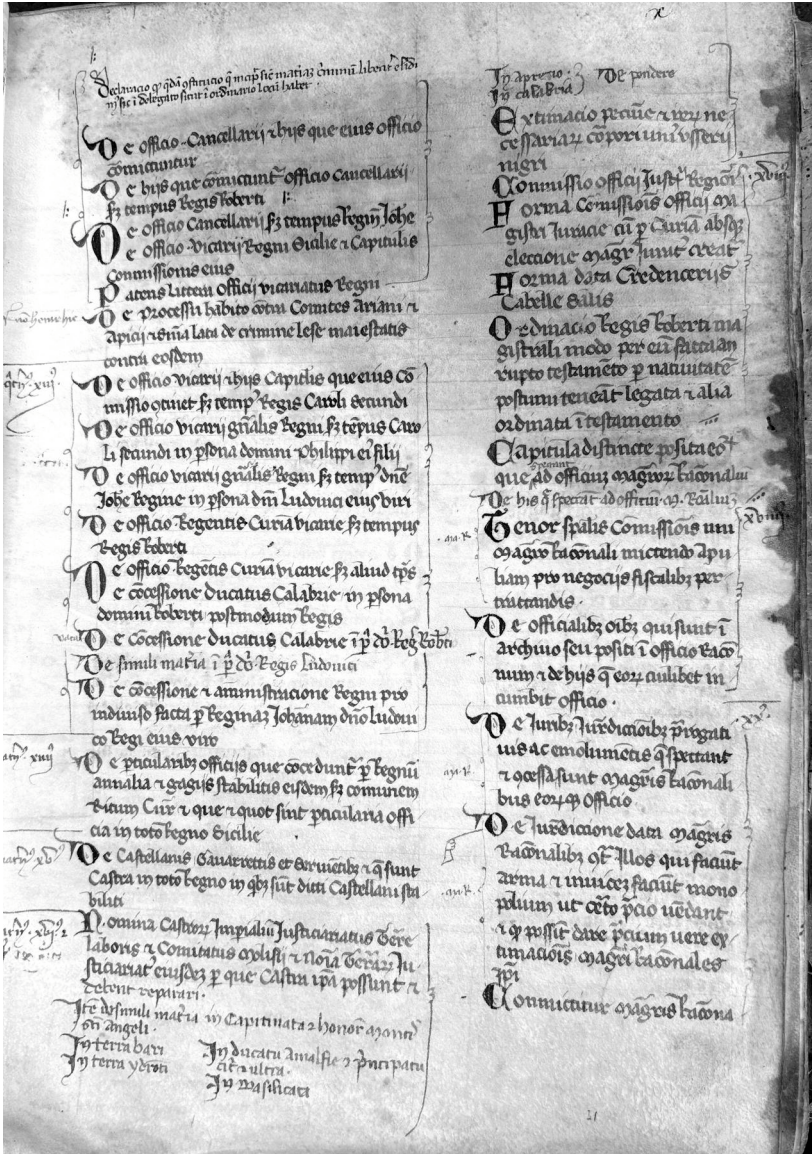 x
De officio Cancellarii & hiis que eius officio
comictuntur
De hiis que comictunt officio Cancellarii
s̄z tempus Regis Roberti
De officio Cancellarii s̄z tempus Regin Johe
De officio vicarii Regni Sicilie & Capitulis
Commissionis eius
Patens littera officii vicariatus Regni
De processu habito contra Comites Ariani &
Apicii & snia lata de crimine lese maiestatis
contra eosdem
De officio vicarii & hiis Capitlis que eius cō
missio 9tinet s̄z temp9 Regis Caroli secundi
De officio vicarii gn̄alis Regni s̄z tēpus Caro
li secundi in p̄sona domini Philippi ei9 filii
De officio vicarii gn̄alis Regni s̄z temp9 dn̄e
Johe Regine in p̄sona dni Ludovici eius viri
De officio Regentis Curiā vicarie s̄z tempus
Regis Roberti
De officio Regētis Curiā vicarie s̄z aliud tp̄s
De cōcessione ducatus Calabrie in p̄sona
domini Roberti postmodum Regis
vacat De cōcessione Ducatus Calabrie ī p̄
De simili mat̄ia ī p̄ Regis Ludovici
De cōcessione & aministracione Regni pro
indiuiso facta p Reginaz Johānam dn̄o Ludoui
co Regi eius viro
De p̄ticularibz officiis que cōcedunt p Regnū
annalia & gagiis stabilitis eisdem s̄z comunem
Ritum Cur & que & quot sint p̄ticularia offi
cia in toto Regno Sicilie
De Castellanis Gauarrettis et Seruientibz & q̄ sunt
Castra in toto Regno in qbz sūt dicti Castellani sta
biliti
Nomina Castror Imp̄ialiū Justiciariatus Terre
laboris & Comitatus Molisii & noīa Terrar Ju
sticiariat9 eiusdez p que Castra ip̄a possunt &
debent reparari.
Itē de simili mat̄ia in Capitinata & honor̄ monti
sc̄ti Angeli.
In terra bari
In terra ydrōti
In ducatu Amalfie & p̄ncipatu
cit̄ & ultra.
In Basilicata
In aprutio
In calabria
De pondere
Extimacio pecunie & rer̄ ne
cessariar cōpori uni9 usserii
nigri
Commissio officii Justi Regioni xviii
Forma Cōmissiois officii ma
gistri Iuracie cū p Curiā absq
eleccione magr Iurat creat̄
Forma data Credenceriis
Cabelle salis
Ordinacio Regis Roberti ma
gistrali modo per eū facta an
rupto testamēto p natiuitatē
postumi teneāt legata & alia
ordinata ī testamento
Capitula distincte posita
que spectant ad officiuz magror Raconaliu
De his q̄ spectāt ad officiū M. Rōaliuz
Tenor sp̄alis Comissiōis uni
Magro Raconali mictendo Apu
liam pro negociis fiscalibz per
tractandis.
De officialibz oibz qui sunt ī
archivio seu positi ī officio Racō
num & de hiis que eor cuilibet in
cumbit officio.
De Iuribz Iur̄dicionibz p̄rogati xx
uis ac emolumētis q̄ spectant
& 9cessa sunt magris Raconali
bus eorq officio
De Iur̄dicione data magris
Raconalibz 9t̄ Illos qui faciūt
arma & inuicez faciūt mono
polium ut cēto p̄cio uēdant
& q possit dare p̄cium uere ex
timaciois magri Raconales
ip̄i
Conmictitur magris Racona